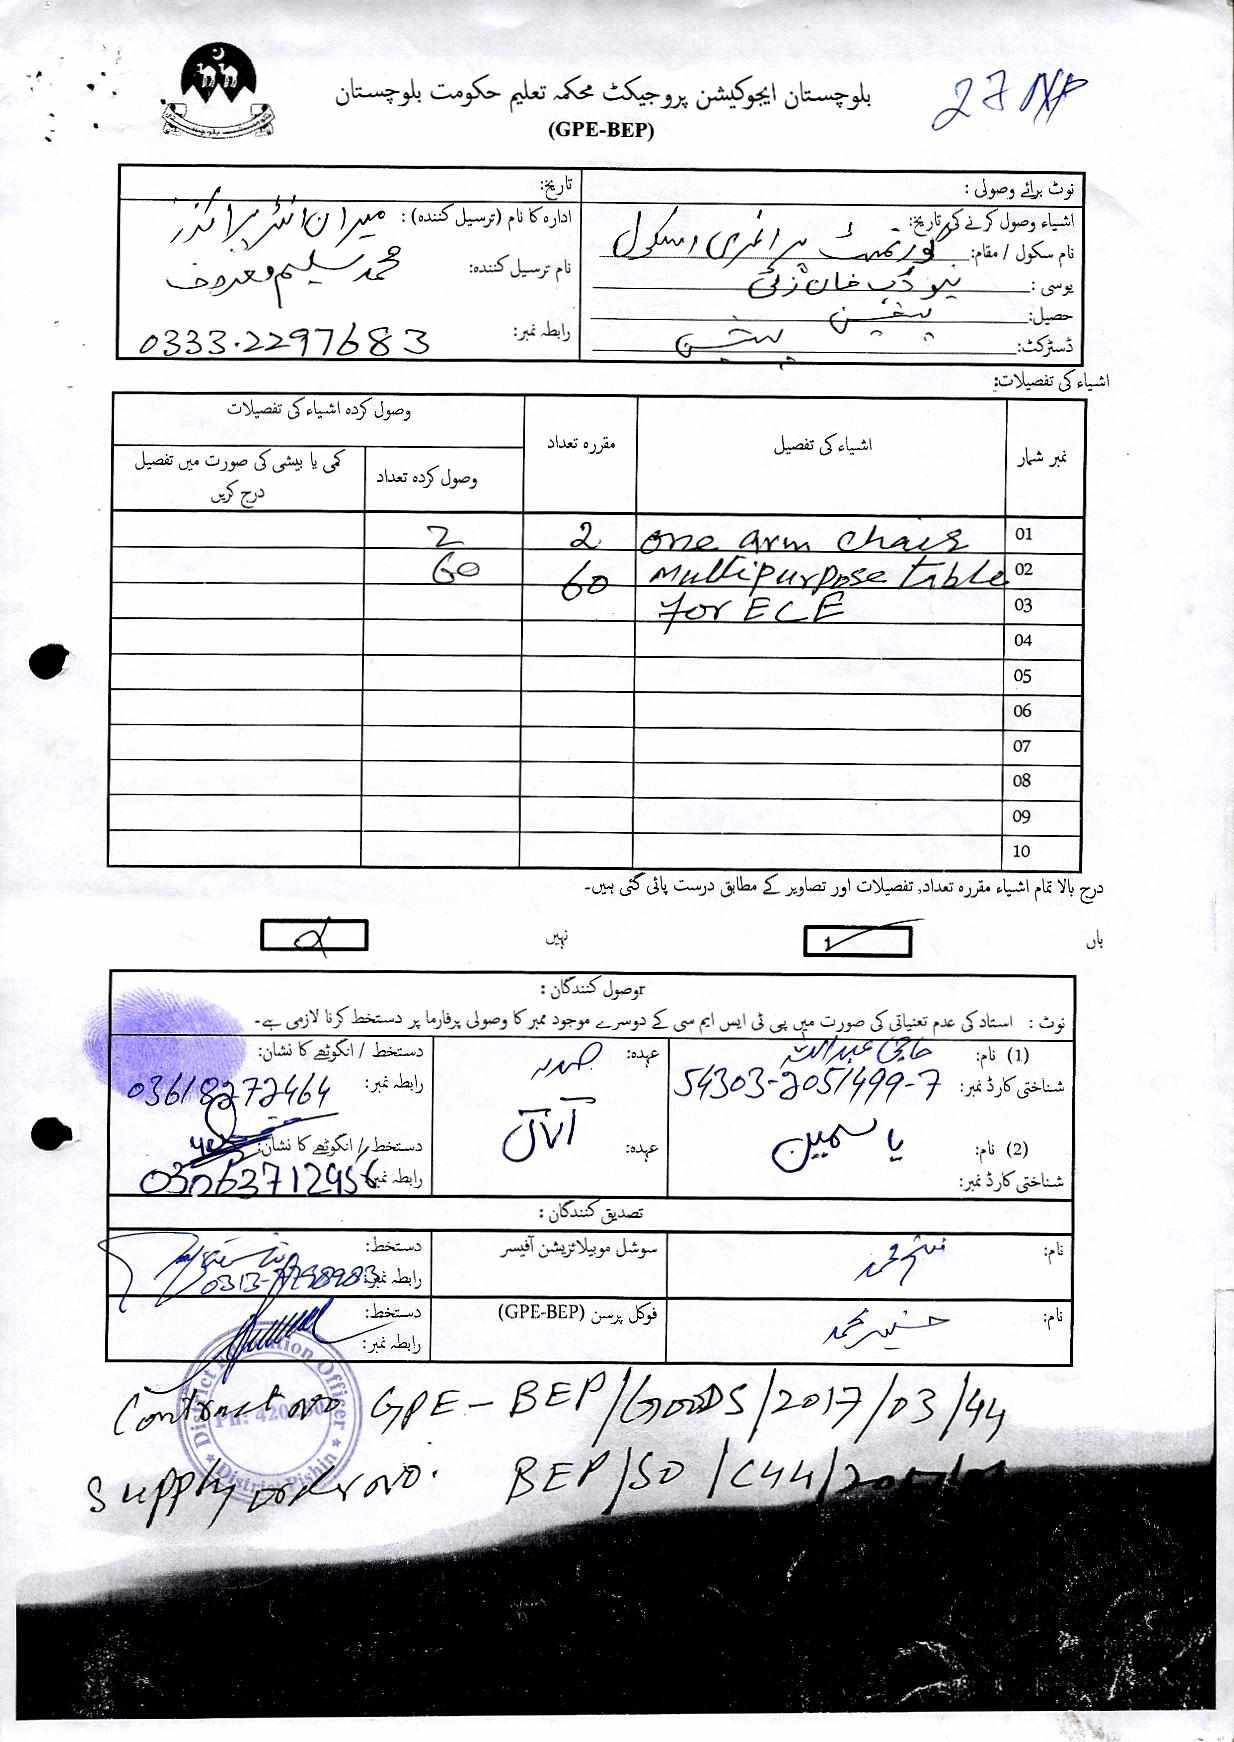 بلوچستان ایجوکیشن پروجیکٹ محکمہ تعلیم حکومت بلوچستان
(GPE-BEP)
نوٹ برائے وصولی :
تاریخ:
اشیاء وصول کرنے کی تاریخ:
نام سکول / مقام: گورنمنٹ پرائمری اسکول
یوسی :
خان زئی
حصیل: پشین
ڈسٹرکٹ: پشین
ادارہ کا نام (ترسیل کنندہ) : میران انٹرپرائزز
نام ترسیل کنندہ: محمد سلیم معروف
رابطہ نمبر: 0333-2297683
اشیاء کی تفصیلات:
نمبر شمار
اشیاء کی تفصیل
مقررہ تعداد
وصول کردہ اشیاء کی تفصیلات
وصول کردہ تعداد
کمی یا بیشی کی صورت میں تفصیل درج کریں
01 one arm chair 2 2
02 Multipurpose table 60 60
03 for ECE
04
05
06
07
08
09
10
درج بالا تمام اشیاء مقررہ تعداد, تفصیلات اور تصاویر کے مطابق درست پائی گئی ہیں۔
ہاں
نہیں
وصول کنندگان :
نوٹ : استاد کی عدم تعنیاتی کی صورت میں پی ٹی ایس ایم سی کے دوسرے موجود ممبر کا وصولی پرفارما پر دستخط کرنا لازمی ہے۔
(1) نام: حاجی عبداللہ
عہدہ: صدر
دستخط / انگوٹھے کا نشان:
شناختی کارڈ نمبر: 54303-2051499-7
رابطہ نمبر: 03618272464
(2) نام: یاسمین
عہدہ:
دستخط / انگوٹھے کا نشان:
شناختی کارڈ نمبر:
رابطہ نمبر:
تصدیق کنندگان :
نام:
سوشل موبیلائزیشن آفیسر
دستخط:
رابطہ نمبر:
نام:
فوکل پرسن (GPE-BEP)
دستخط:
رابطہ نمبر:
District Education Officer
District Pishin
Contract no GPE-BEP/GOODS/2017/03/44
Supply order no. BEP/SO/C44/